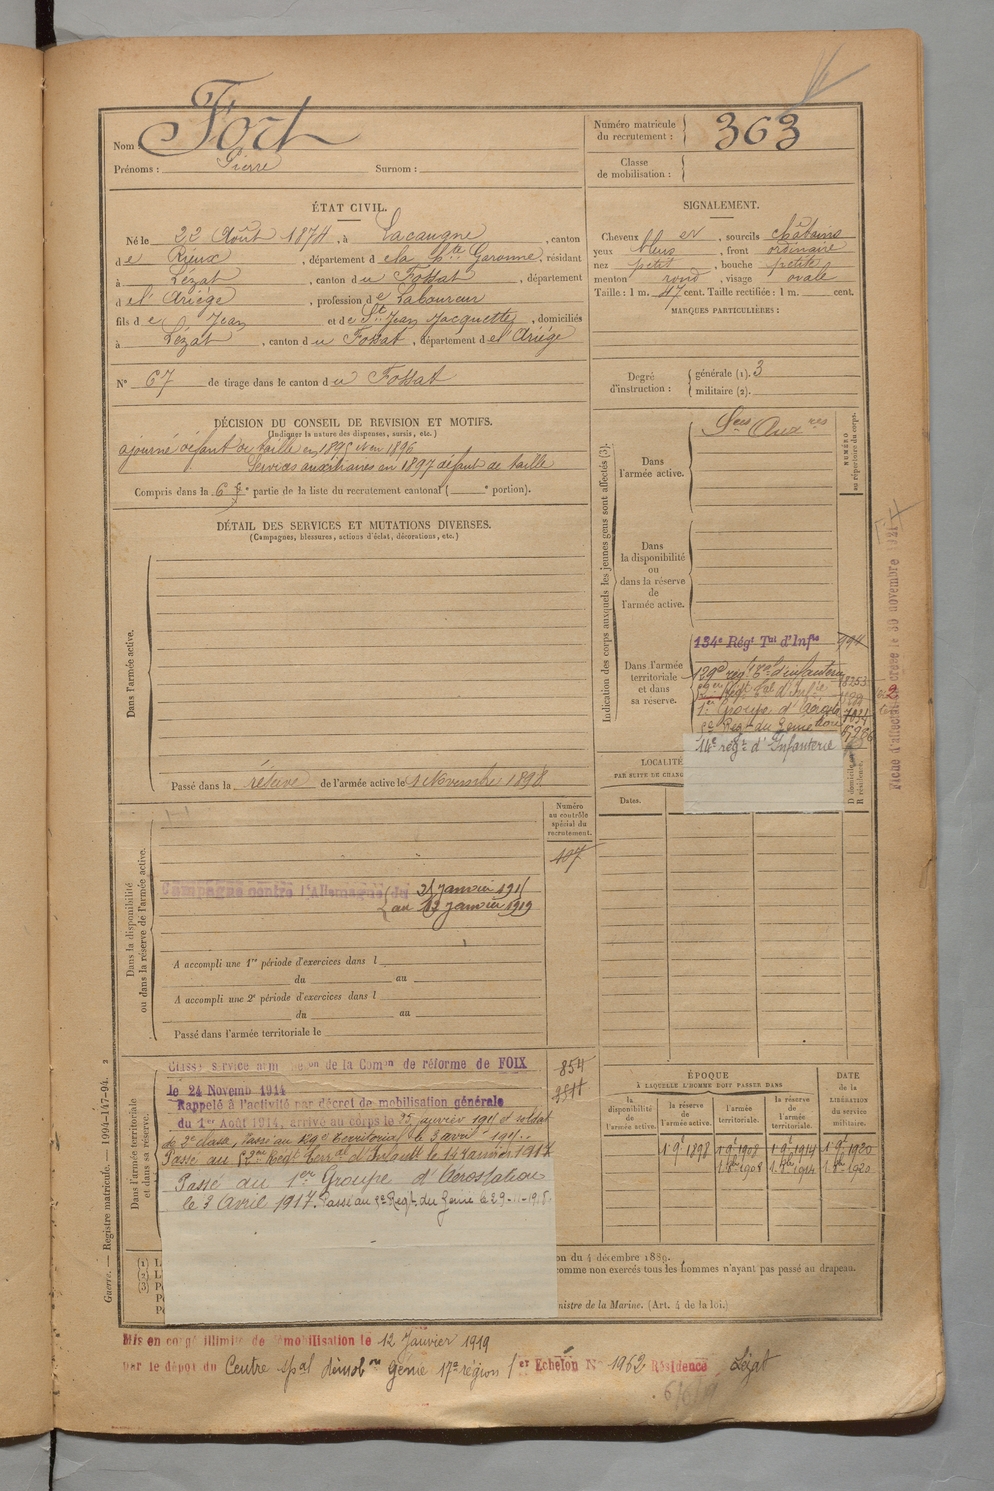 Nom : Fort
Prénoms : Pierre Surnom :
Numéro matricule du recrutement : 363
Classe de mobilisation :
ÉTAT CIVIL.
Né le 22 Août 1874, à Lacaugne, canton
de Rieux, département de la Hte Garonne, résidant
à Lézat, canton du Fossat, département
de l'Ariège, profession de Laboureur
fils de Jean et de St Jean Jacquette, domiciliés
à Lézat, canton du Fossat, département de l'Ariège
N° 67 de tirage dans le canton du Fossat
SIGNALEMENT.
Cheveux et, sourcils châtains
yeux bleus, front ordinaire
nez petit, bouche petite
menton rond, visage ovale
Taille : 1 m. 47 cent. Taille rectifiée : 1 m. cent.
MARQUES PARTICULIÈRES :
Degré d'instruction : générale (1). 3
militaire (2).
DÉCISION DU CONSEIL DE REVISION ET MOTIFS.
(Indiquer la nature des dispenses, sursis, etc.)
ajourné défaut de taille en 1895 et en 1896
Services auxiliaires en 1897 défaut de taille
Compris dans la 6e partie de la liste du recrutement cantonal ( e portion).
DÉTAIL DES SERVICES ET MUTATIONS DIVERSES.
(Campagnes, blessures, actions d'éclat, décorations, etc.)
Dans l'armée active.
Passé dans la réserve de l'armée active le 1 Novembre 1898
Indication des corps auxquels les jeunes gens sont affectés (3).
NUMÉRO au répertoire du corps.
Dans l'armée active.
Sces Auxres
Dans la disponibilité ou dans la réserve de l'armée active.
Dans l'armée territoriale et dans sa réserve.
134e Régt Tal d'Infie 994
129e régt tal d'infanterie
1er Groupe d'Aérosta
Regt du Génie
14e régt d'Infanterie
Fiche d'affectation créée le 30 novembre 1921
LOCALITÉ
PAR SUITE DE CHANG
Dates.
D domicile
R résidence.
Numéro au contrôle spécial du recrutement.
107
Dans la disponibilité ou dans la réserve de l'armée active.
Campagne contre l'Allemagne du
janvier 1915
au 12 janvier 1919
A accompli une 1re période d'exercices dans l
du au
A accompli une 2e période d'exercices dans l
du au
Passé dans l'armée territoriale le
Dans l'armée territoriale et dans sa réserve.
Classé service armé de la Comon de réforme de FOIX
le 24 Novemb 1914
854
Rappelé à l'activité par décret de mobilisation générale
du 1er Août 1914, arrivé au corps le 25 janvier 1915 et soldat
de 2e classe, Passé au 129e territorial le 3 avril 1915.
Passé au 57me Régt Terral d'Infant le 14 janvier 1917
Passé au 1er Groupe d'Aérostation
le 3 Avril 1917. Passé au 2e Regt. du Genie le 29-11-1918
ÉPOQUE
À LAQUELLE L'HOMME DOIT PASSER DANS
la disponibilité de l'armée active.
la réserve de l'armée active.
l'armée territoriale.
la réserve de l'armée territoriale.
DATE de la LIBÉRATION du service militaire.
1 9e 1898 1 9e 1908 1 9e 1914 1 9e 1920
1908 1914 1920
on du 4 décembre 1889.
comme non exercés tous les hommes n'ayant pas passé au drapeau.
nistre de la Marine. (Art. 4 de la loi.)
Guerre. — Registre matricule. — 1994-147-94. 2
Mis en congé illimité de démobilisation le 12 Janvier 1919
par le dépôt du Centre spal démobon Génie 17e région 1er Echelon N° 1962 Résidence Lézat